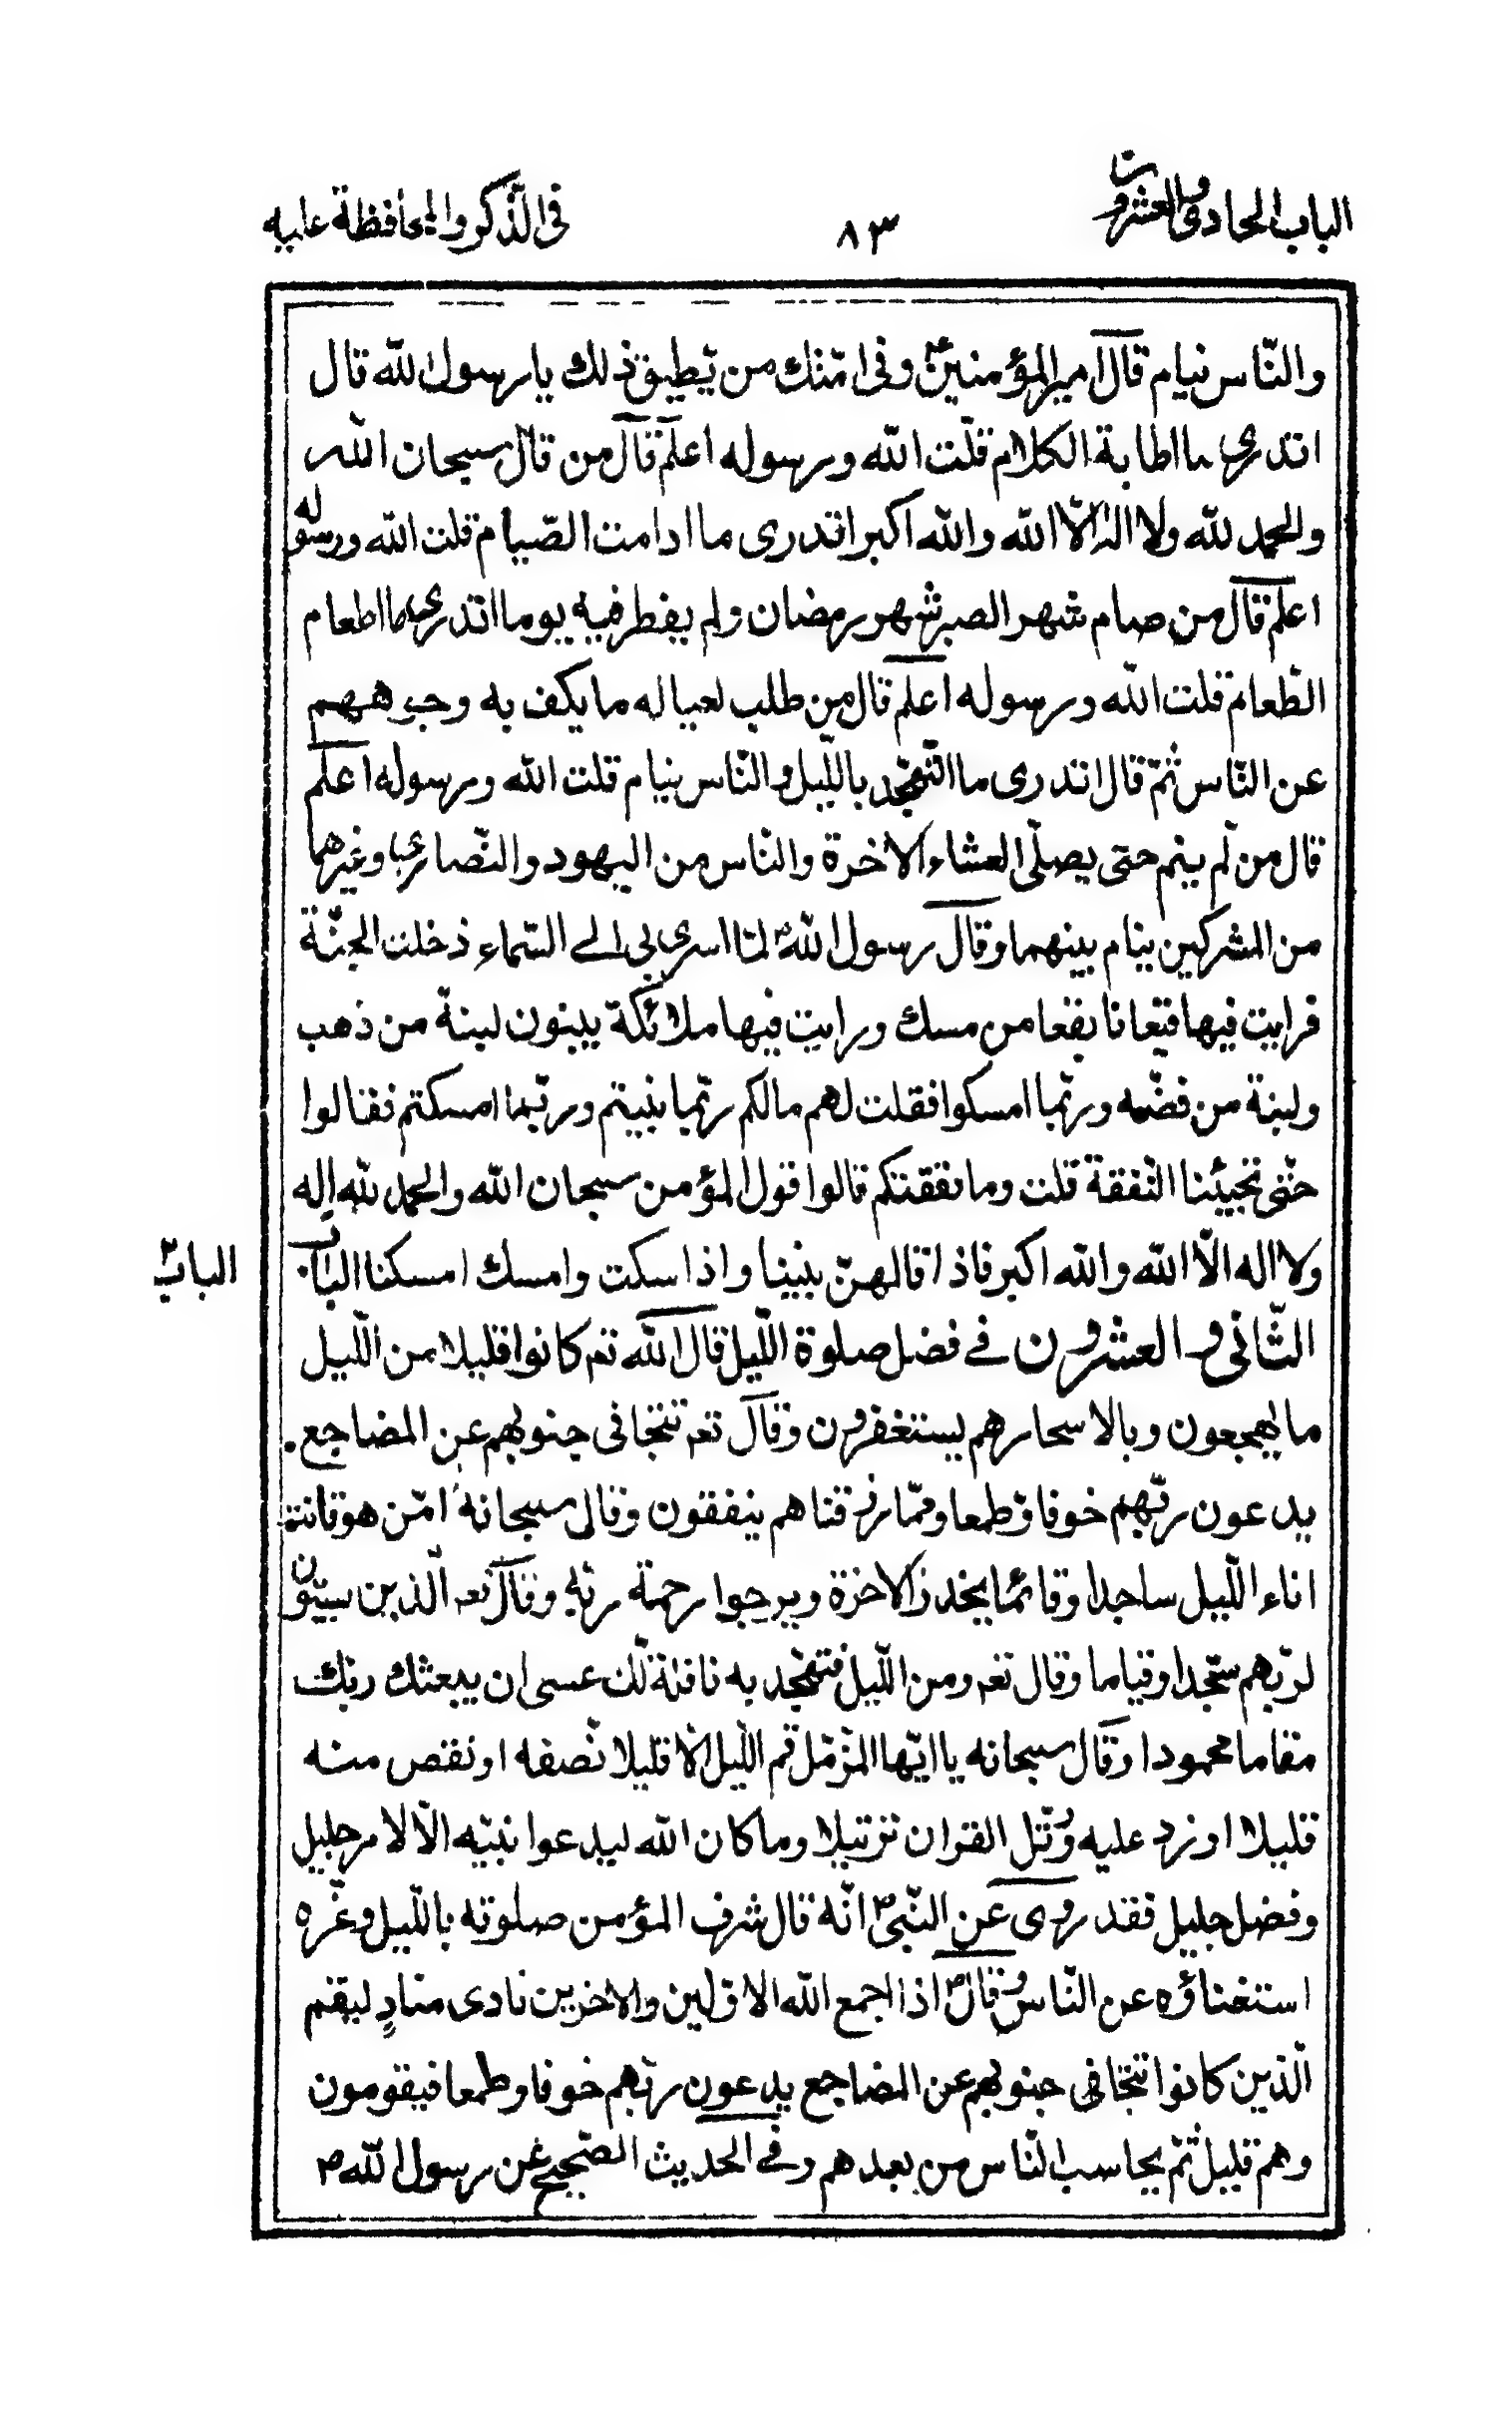 الباب الحادي والعشرون
٨٣
في الذكر والمحافظة عليه
والنّاس نيام قال امير المؤمنينؑ وفى امّتك من يطيق ذلك يا رسول الله قال
اتدرى ما اطابة الكلام قلت الله ورسوله اعلم قال من قال سبحان الله
والحمد لله ولا اله الّا الله والله اكبر اتدرى ما ادامت الصّيام قلت الله ورسوله
اعلم قال من صام شهر الصبر شهر رمضان ولم يفطر فيه يوما اتدرى ما اطعام
الطّعام قلت الله ورسوله اعلم قال من طلب لعياله ما يكف به وجوههم
عن النّاس ثمّ قال اتدرى ما التهجّد بالليل والنّاس نيام قلت الله ورسوله اعلم
قال من لم ينم حتى يصلّى العشاء الاخرة والناس من اليهود والنّصارى وغيرهما
من المشركين ينام بينهما وقال رسول اللهؐ لمّا اسرى بى الى السّماء دخلت الجنّة
فرايت فيها قيعانا يفعا من مسك ورايت فيها ملائكة يبنون لبنة من ذهب
ولبنة من فضّه وربّما امسكوا فقلت لهم مالكم ربّما بنيتم وربّما امسكتم فقالوا
حتّى تجيئنا النّفقة قلت وما نفقتكم قالوا قول المؤمن سبحان الله والحمد لله اله
ولا اله الّا الله والله اكبر فاذا قالهنّ بنينا واذا سكت وامسك امسكنا الباب
الباب
الثّانى والعشرون في فضل صلوة اللّيل قال الله تعم كانوا قليلا من اللّيل
ما يهجعون وبالاسحارهم يستغفرون وقال تعه تتجافى جنوبهم عن المضاجع
يدعون ربّهم خوفا وّطمعا وممّا رزقناهم ينفقون وقال سبحانه امّن هو قانت
اناء اللّيل ساجدا وقائما يحذر الاخرة ويرجوا رحمة ربّه وقال تعه الّذين يبيتون
لربّهم سجّدا وقياما وقال تعه ومن اللّيل فتهجّد به نافلة لّك عسى ان يبعثك ربّك
مقاما محمودا وقال سبحانه يا ايّها المزّمّل قم اللّيل الّا قليلا نّصفه او نقص منه
قليلا او زد عليه ورتّل القران ترتيلا وما كان الله ليدعوا نبيّه الّا لامر جليل
وفضل جليل فقد روى عن النّبىؐ انّه قال شرف المؤمن صلوته باللّيل وعزّه
استغناؤه عن النّاس وقالؐ اذا جمع الله الاوّلين والاخرين نادى منادٍ ليقم
الّذين كانوا تتجافى جنوبهم عن المضاجع يدعون ربّهم خوفا وطمعا فيقومون
وهم قليل ثمّ يحاسب النّاس من بعدهم وفى الحديث الصّحيح عن رسول اللهؐ